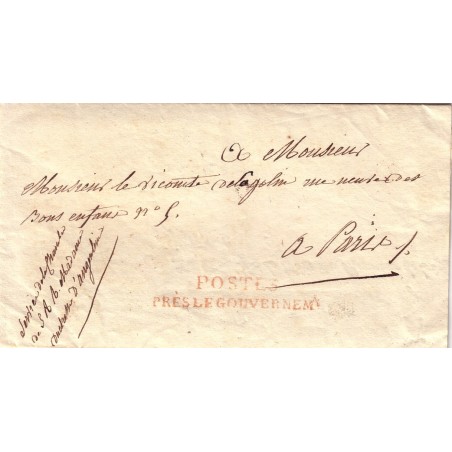 A Monsieur
Monsieur le vicomte rue neuve des
Bons enfans n° 5.
a Paris
POSTES
PRÈS LE GOUVERNEMT
Service de
de S. A. R. Madame
duchesse d'angoulême